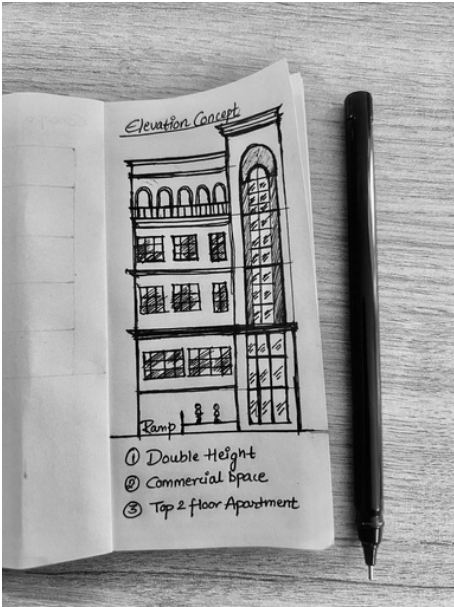 Elevation Concept
Ramp
① Double Height
② Commercial Space
③ Top 2 floor Apartment